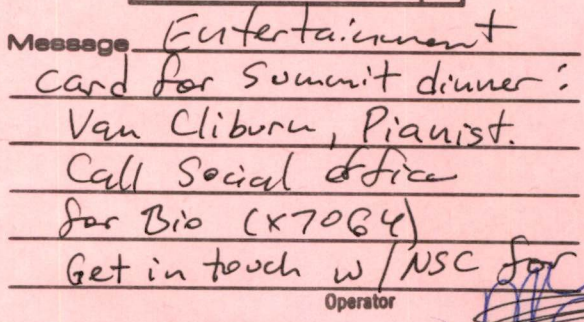 Message Entertainment
card for Summit dinner:
Van Cliburn, Pianist.
Call Social office
for Bio (x7064)
Get in touch w/NSC for
Operator